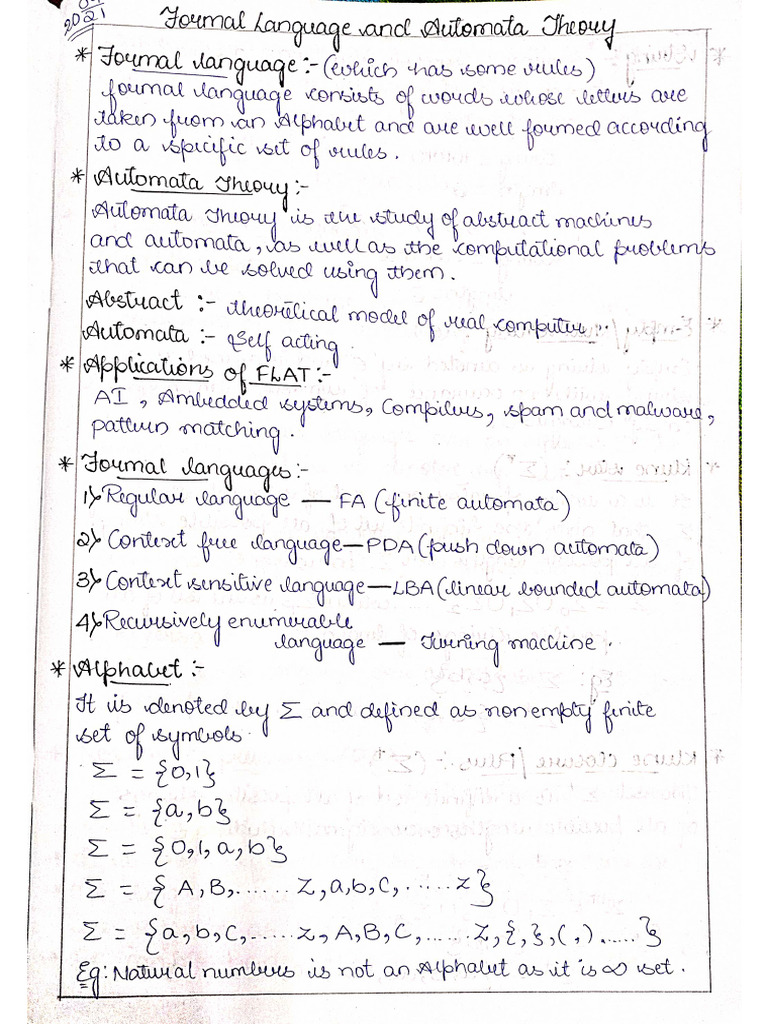 2021
Formal Language and Automata Theory
* Formal language :- (which has some rules)
formal language consists of words whose letters are
taken from an Alphabet and are well formed according
to a specific set of rules.
* Automata Theory :-
Automata Theory is the study of abstract machines
and automata, as well as the computational problems
that can be solved using them.
Abstract :- theoretical model of real computer.
Automata :- Self acting.
* Applications of FLAT :-
AI, Ambedded systems, Compilers, spam and malware,
pattern matching.
* Formal languages :-
1) Regular language — FA (finite automata)
2) Context free language — PDA (push down automata)
3) Context sensitive language — LBA (linear bounded automata)
4) Recursively enumerable
language — Turning machine.
* Alphabet :-
It is denoted by Σ and defined as non empty finite
set of symbols.
Σ = {0,1}
Σ = {a,b}
Σ = {0,1,a,b}
Σ = {A,B,......Z,a,b,C,.....z}
Σ = {a,b,C,.....z,A,B,C,......Z,{,},(,).....}
Eg: Natural numbers is not an Alphabet as it is ∞ set.